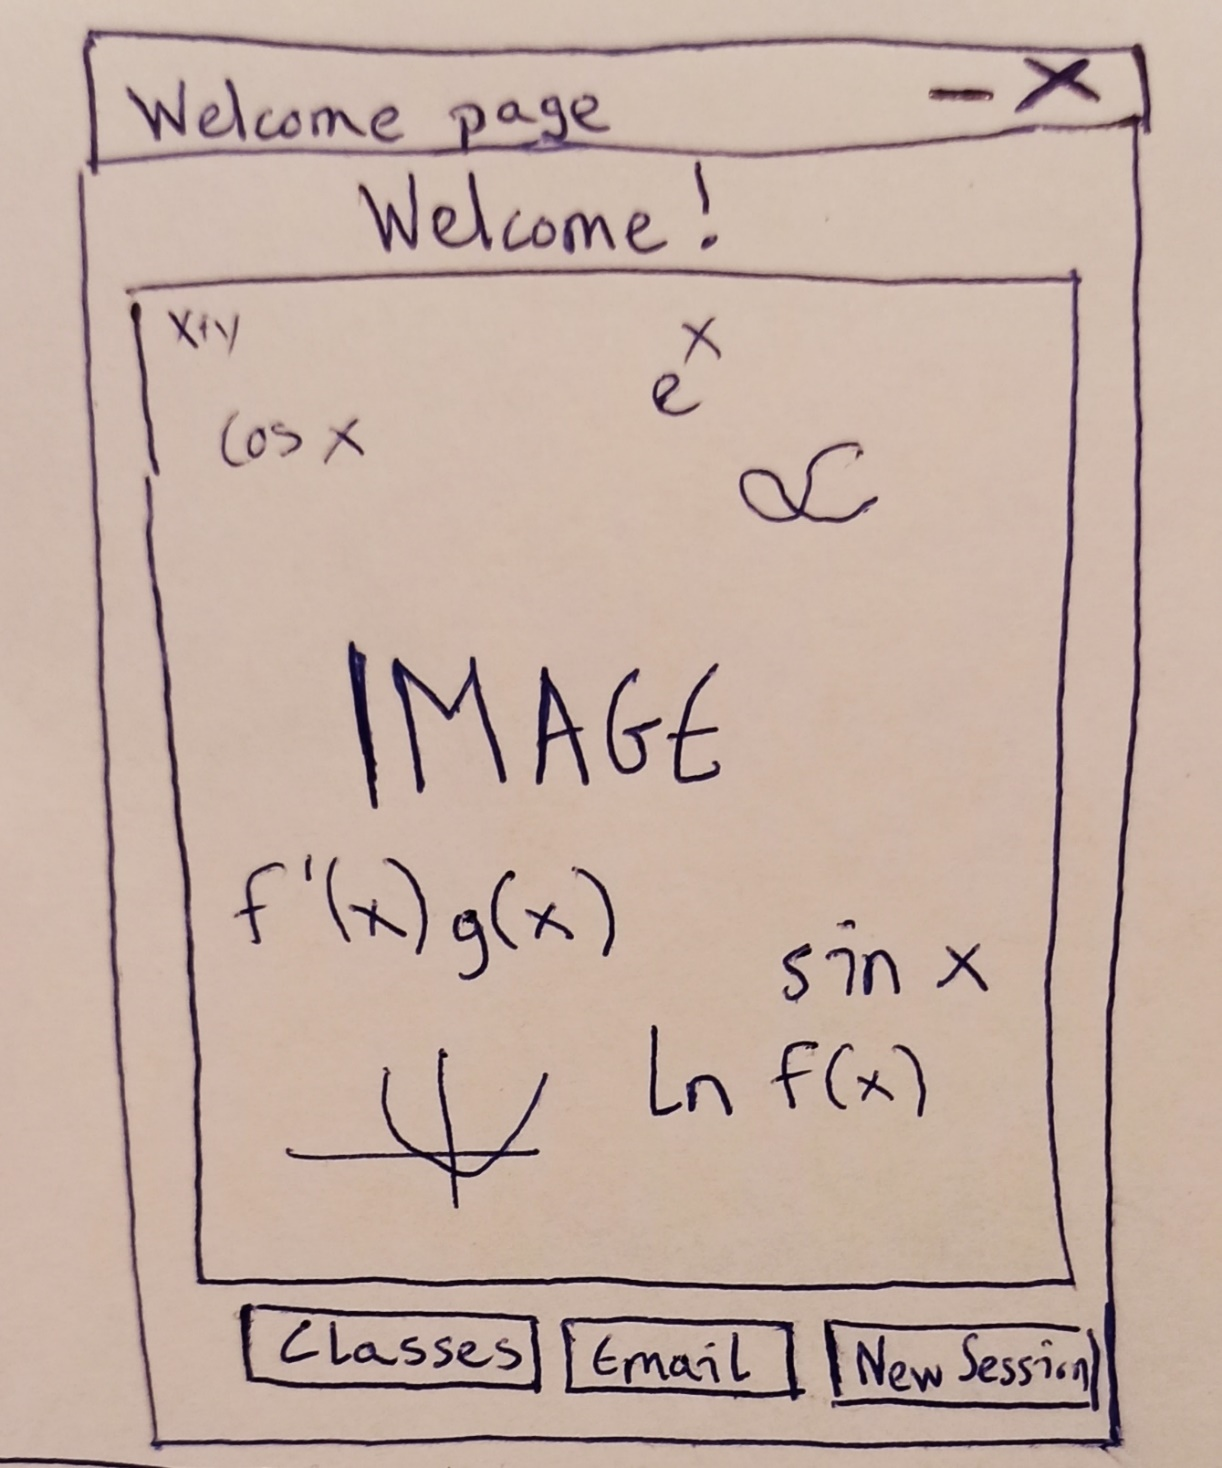 Welcome page - X
Welcome!
x+y
e^x
cos x
∝
IMAGE
f'(x) g(x)
sin x
Ln f(x)
Classes Email New Session